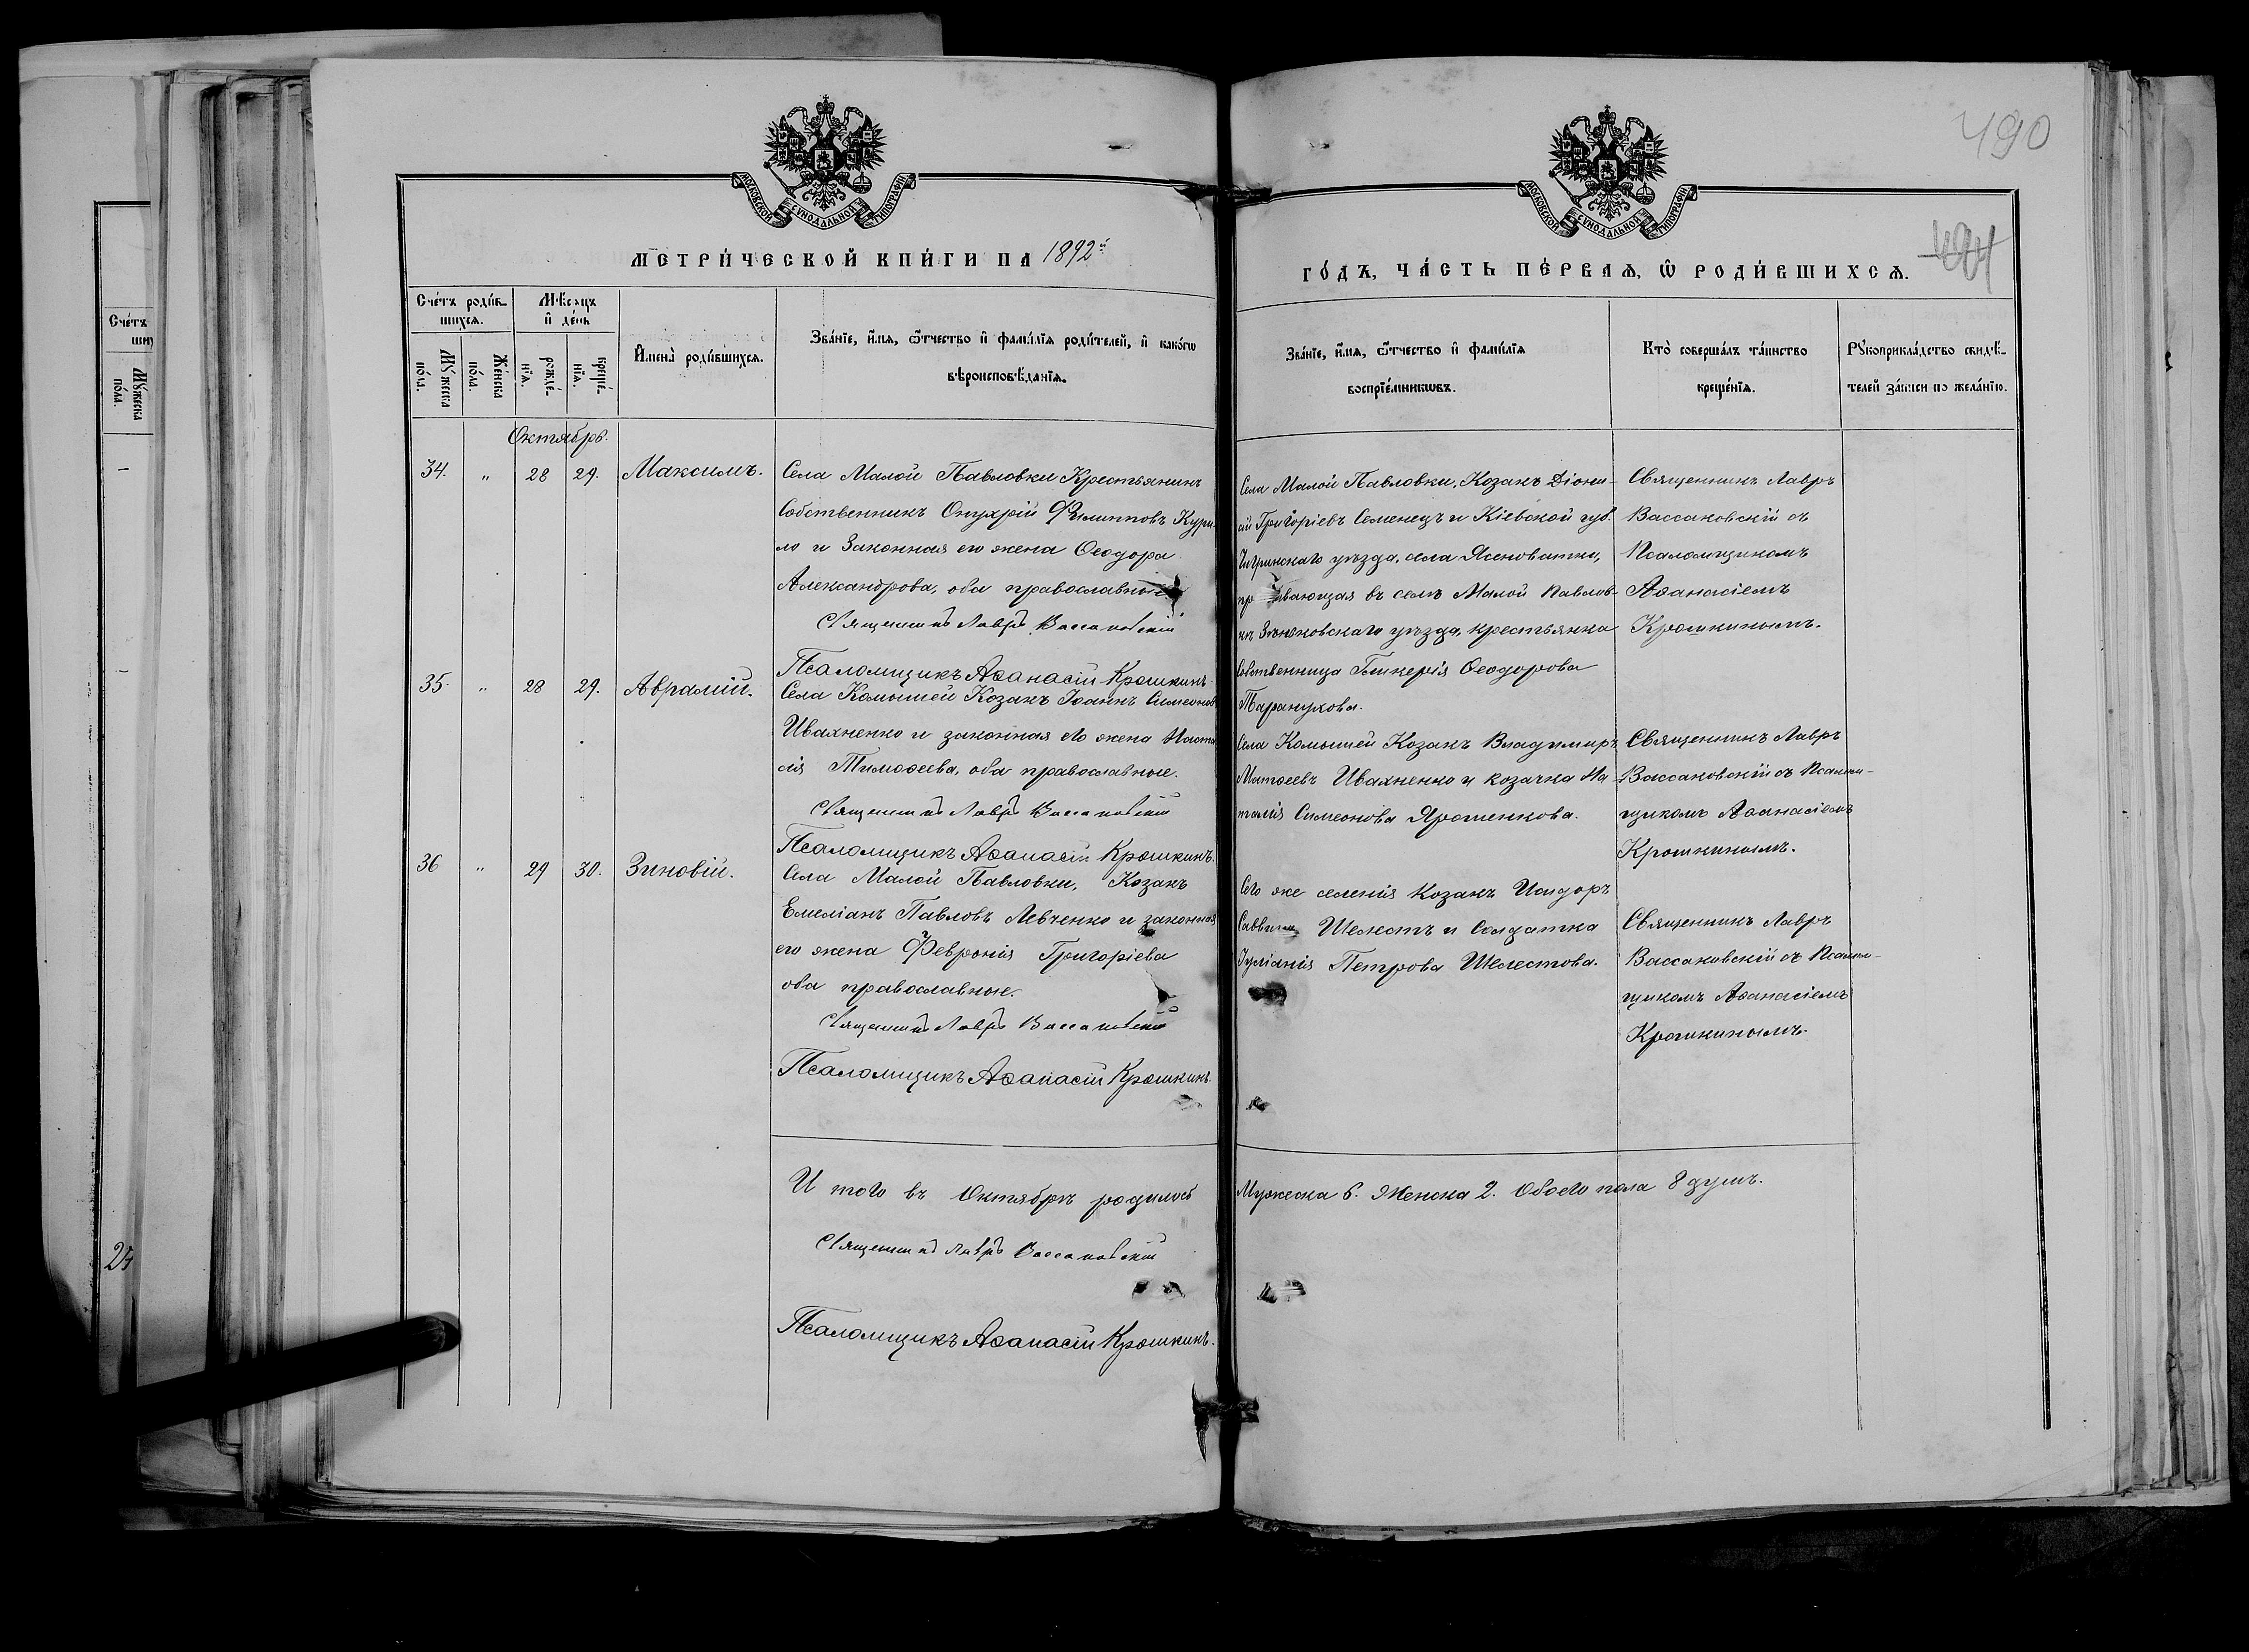 490
МОСКОВСКОЙ СѴНОДАЛЬНОЙ ТИПОГРАФІИ
МОСКОВСКОЙ СѴНОДАЛЬНОЙ ТИПОГРАФІИ
МЕТРИ́ЧЕСКОЙ КНИ́ГИ НА 1892й
ГО́ДЪ, ЧА́СТЬ ПЕ́РВАЯ, Ѡ РОДИ́ВШИХСЯ.
Сче́тъ роди́в-
шихся.
Му́жеска по́ла.
Же́нска по́ла.
Мѣ́сяцъ
и҆ де́нь
рожде́-нїя.
креще́-нїя.
И҆мена̀ роди́вшихся.
Зва́нїе, и҆́мя, ѻ҆́тчество и҆ фами́лїя роди́телей, и҆ како́гѡ
вѣроисповѣ́данїя.
Зва́нїе, и҆́мя, ѻ҆́тчество и҆ фами́лїя
воспрїе́мникѡвъ.
Кто̀ соверша́лъ та́инство
креще́нїя.
Рꙋкоприкла́дство свидѣ́-
телей за́писи по жела́нїю.
Сче́тъ
ших
Му́жеска по́ла.
Октябрь.
34. " 28 29. Максимъ.
Села Малой Павловки Крестьянинъ
Собственникъ Онуфрій Филипповъ Кури-
ло и Законная его жена Ѳеодора
Александрова, оба православные
Священникъ Лавръ Вассаковскій
Псаломщикъ Аѳанасій Крошкинъ
Села Малой Павловки, Козакъ Діони-
сій Григоріевъ Семенецъ и Кіевской губ.
Чигринскаго уѣзда, села Ясеноватки,
вающая въ селѣ Малой Павлов-
ки Зѣньковскаго уѣзда, крестьянка
Собственница Гликерія Ѳеодорова
Таранухова.
Священникъ Лавръ
Вассаковскій съ
Псаломщикомъ
Аѳанасіемъ
Крошкинымъ.
35. " 28 29. Аврамій.
Села Комышей Козакъ Іоаннъ Симеоновъ
Ивахненко и законная его жена Наста
сія Тимоѳеева, оба православные.
Священникъ Лавръ Вассаковскій
Псаломщикъ Аѳанасій Крошкинъ.
Села Комышей Козакъ Владимиръ
Матѳеевъ Ивахненко и козачка На-
талія Симеонова Ярошенкова.
Священникъ Лавръ
Вассаковскій съ Псалом-
щикомъ Аѳанасіемъ
Крошкинымъ.
36 " 29 30. Зиновій.
Села Малой Павловки, Козакъ
Емеліанъ Павловъ Левченко и законная
его жена Февронія Григоріева
оба православные.
Священникъ Лавръ Вассаковскій
Псаломщикъ Аѳанасій Крошкинъ.
Сего же селенія Козакъ Исидоръ
Саввинъ Шелестъ и Солдатка
Іуліанія Петрова Шелестова.
Священникъ Лавръ
Вассаковскій съ Псалом-
щикомъ Аѳанасіемъ
Крошкинымъ.
И того въ Октябрѣ родилось
Мужеска 6. Женска 2. Обоего пола 8 душъ.
Священникъ Лавръ Вассаковскій
Псаломщикъ Аѳанасій Крошкинъ.